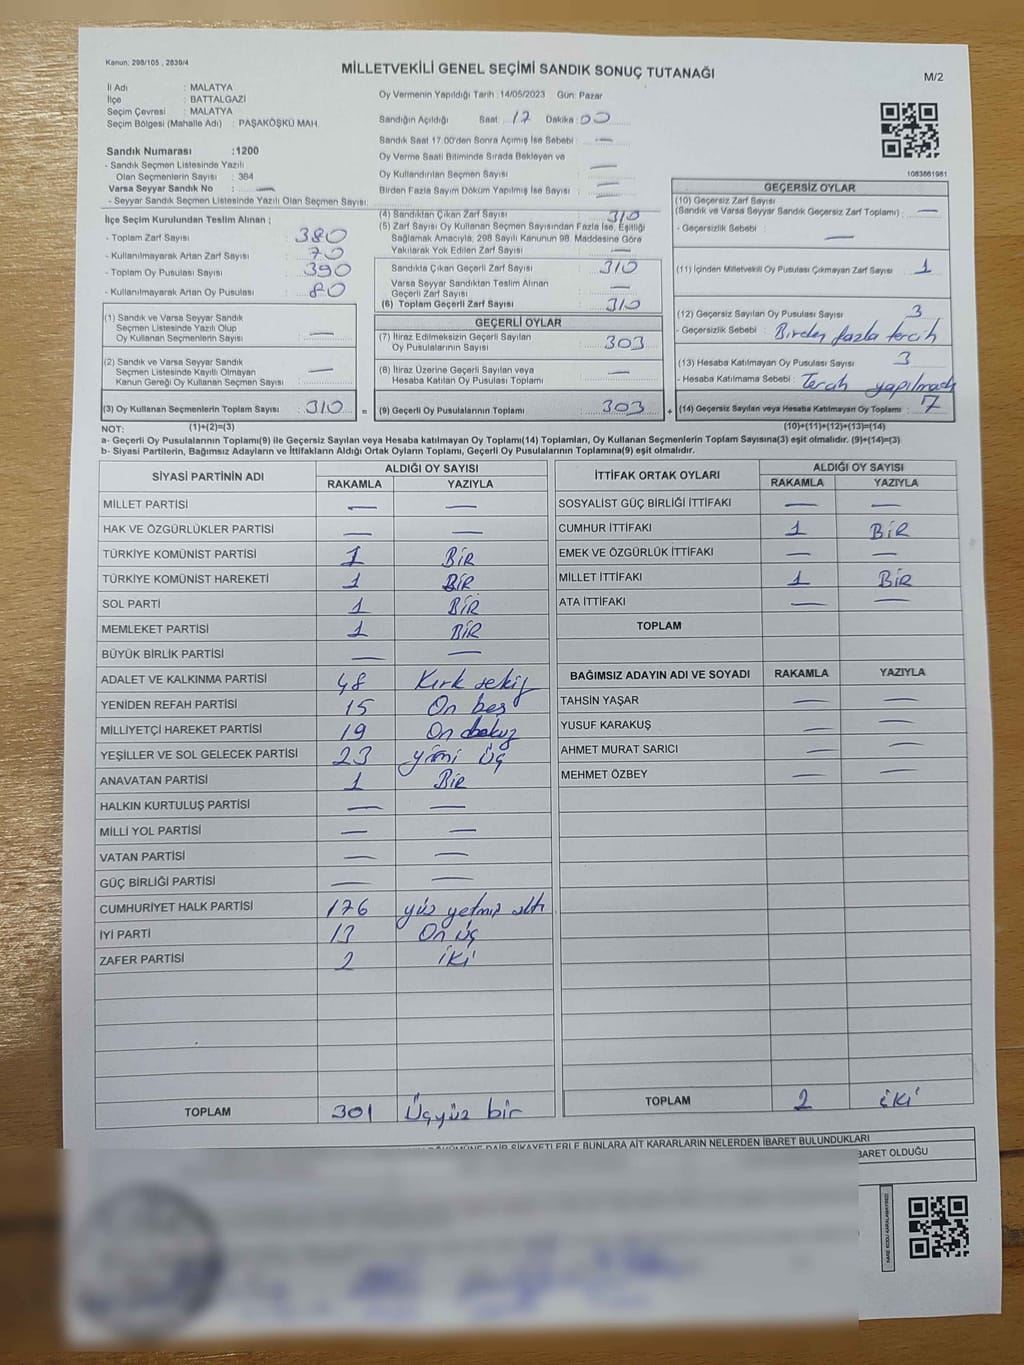 Kanun: 298/105 , 2839/4
MİLLETVEKİLİ GENEL SEÇİMİ SANDIK SONUÇ TUTANAĞI
M/2
İl Adı : MALATYA
İlçe : BATTALGAZİ
Seçim Çevresi : MALATYA
Seçim Bölgesi (Mahalle Adı) : PAŞAKÖŞKÜ MAH.
Oy Vermenin Yapıldığı Tarih :14/05/2023 Gün: Pazar
Sandığın Açıldığı Saat: 17 Dakika: 00
Sandık Saat 17:00'den Sonra Açımış İse Sebebi : —
Oy Verme Saati Bitiminde Sırada Bekleyen ve
Oy Kullandırılan Seçmen Sayısı : —
Birden Fazla Sayım Döküm Yapılmış İse Sayısı : —
1083861981
Sandık Numarası :1200
- Sandık Seçmen Listesinde Yazılı
Olan Seçmenlerin Sayısı : 384
Varsa Seyyar Sandık No : —
- Seyyar Sandık Seçmen Listesinde Yazılı Olan Seçmen Sayısı:
İlçe Seçim Kurulundan Teslim Alınan ;
- Toplam Zarf Sayısı : 380
- Kullanılmayarak Artan Zarf Sayısı : 70
- Toplam Oy Pusulası Sayısı : 390
- Kullanılmayarak Artan Oy Pusulası : 80
(1) Sandık ve Varsa Seyyar Sandık
Seçmen Listesinde Yazılı Olup
Oy Kullanan Seçmenlerin Sayısı : —
(2) Sandık ve Varsa Seyyar Sandık
Seçmen Listesinde Kayıtlı Olmayan
Kanun Gereği Oy Kullanan Seçmen Sayısı : —
(3) Oy Kullanan Seçmenlerin Toplam Sayısı : 310 =
(4) Sandıktan Çıkan Zarf Sayısı : 310
(5) Zarf Sayısı Oy Kullanan Seçmen Sayısından Fazla İse, Eşitliği
Sağlamak Amacıyla, 298 Sayılı Kanunun 98. Maddesine Göre
Yakılarak Yok Edilen Zarf Sayısı : —
Sandıkta Çıkan Geçerli Zarf Sayısı : 310
Varsa Seyyar Sandıktan Teslim Alınan
Geçerli Zarf Sayısı : —
(6) Toplam Geçerli Zarf Sayısı : 310
GEÇERLİ OYLAR
(7) İtiraz Edilmeksizin Geçerli Sayılan
Oy Pusulalarının Sayısı : 303
(8) İtiraz Üzerine Geçerli Sayılan veya
Hesaba Katılan Oy Pusulası Toplamı : —
(9) Geçerli Oy Pusulalarının Toplamı : 303 +
GEÇERSİZ OYLAR
(10) Geçersiz Zarf Sayısı
(Sandık ve Varsa Seyyar Sandık Geçersiz Zarf Toplamı) : —
- Geçersizlik Sebebi : —
(11) İçinden Milletvekili Oy Pusulası Çıkmayan Zarf Sayısı : 1
(12) Geçersiz Sayılan Oy Pusulası Sayısı : 3
- Geçersizlik Sebebi : Birden fazla tercih
(13) Hesaba Katılmayan Oy Pusulası Sayısı : 3
- Hesaba Katılmama Sebebi : Tercih yapılmadı
(14) Geçersiz Sayılan veya Hesaba Katılmayan Oy Toplamı : 7
NOT: (1)+(2)=(3) (10)+(11)+(12)+(13)=(14)
a- Geçerli Oy Pusulalarının Toplamı(9) ile Geçersiz Sayılan veya Hesaba katılmayan Oy Toplamı(14) Toplamları, Oy Kullanan Seçmenlerin Toplam Sayısına(3) eşit olmalıdır. (9)+(14)=(3)
b- Siyasi Partilerin, Bağımsız Adayların ve İttifakların Aldığı Ortak Oyların Toplamı, Geçerli Oy Pusulalarının Toplamına(9) eşit olmalıdır.
SİYASİ PARTİNİN ADI ALDIĞI OY SAYISI
RAKAMLA YAZIYLA
MİLLET PARTİSİ — —
HAK VE ÖZGÜRLÜKLER PARTİSİ — —
TÜRKİYE KOMÜNİST PARTİSİ 1 BİR
TÜRKİYE KOMÜNİST HAREKETİ 1 BİR
SOL PARTİ 1 BİR
MEMLEKET PARTİSİ 1 BİR
BÜYÜK BİRLİK PARTİSİ — —
ADALET VE KALKINMA PARTİSİ 48 Kırk sekiz
YENİDEN REFAH PARTİSİ 15 On beş
MİLLİYETÇİ HAREKET PARTİSİ 19 On dokuz
YEŞİLLER VE SOL GELECEK PARTİSİ 23 yirmi Üç
ANAVATAN PARTİSİ 1 BİR
HALKIN KURTULUŞ PARTİSİ — —
MİLLİ YOL PARTİSİ — —
VATAN PARTİSİ — —
GÜÇ BİRLİĞİ PARTİSİ — —
CUMHURİYET HALK PARTİSİ 176 yüz yetmiş altı
İYİ PARTİ 13 On üç
ZAFER PARTİSİ 2 iKi
TOPLAM 301 Üçyüz bir
İTTİFAK ORTAK OYLARI ALDIĞI OY SAYISI
RAKAMLA YAZIYLA
SOSYALİST GÜÇ BİRLİĞİ İTTİFAKI — —
CUMHUR İTTİFAKI 1 BİR
EMEK VE ÖZGÜRLÜK İTTİFAKI — —
MİLLET İTTİFAKI 1 BİR
ATA İTTİFAKI — —
TOPLAM
BAĞIMSIZ ADAYIN ADI VE SOYADI RAKAMLA YAZIYLA
TAHSİN YAŞAR — —
YUSUF KARAKUŞ — —
AHMET MURAT SARICI — —
MEHMET ÖZBEY — —
TOPLAM 2 iKi
DAİR ŞİKAYETLERLE BUNLARA AİT KARARLARIN NELERDEN İBARET BULUNDUKLARI
BARET OLDUĞU